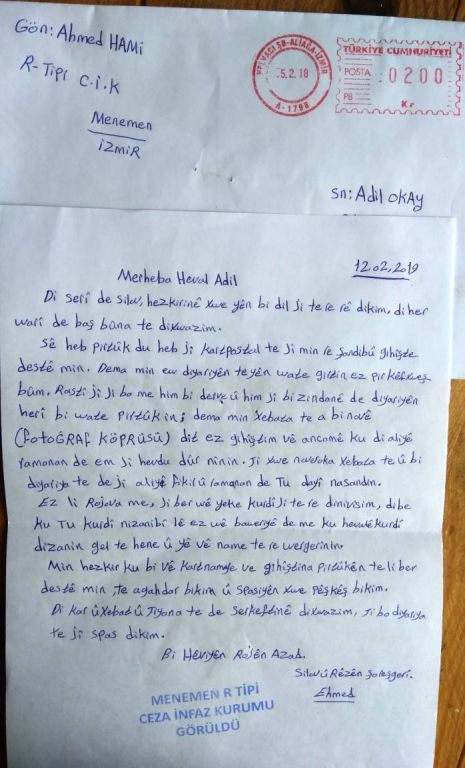 Gön: Ahmed HAMİ
R-Tipi C.İ.K
Menemen
İZMİR
-5.2.18
A-1798
TÜRKİYE CUMHURİYETİ
POSTA
0200
PB
Kr
Sn: Adil OKAY
12.02.2019
Merheba Heval Adil
Di serî de silav, hezkirinê xwe yên bi dil ji te re rê dikim, di her
warî de baş bûna te dixwazim.
Sê heb pirtûk du heb ji kartpostal te ji min re şandibû gihişte
destê min. Dema min ew diyariyên te yên wate girtin ez pir kêfxweş
bûm. Rastî ji ji bo me him bi derve û him ji bi zindanê de diyariyên
herî bi wate pirtûk in; dema min xebata te a bi navê
(FOTOĞRAF KÖPRÜSÜ) dît ez gihiştim vê ancamê ku di aliyê
ramanan de em ji hevdu dûr nînin. Ji xwe naveroka xebata te û bi
diyariya te de ji aliyê fikir û ramanan de Tu dayî nasandin.
Ez li Rojava me, ji ber wê yekê kurdî ji te re dinivîsim, dibe
ku Tu kurdî nizanibî lê ez wê baweriyê de me ku hevalê kurdî
dizanin gel te hene û yê vê name te re wergerînin.
Min hezkir ku bi vê kartnamye gihiştina pirtûkên te li ber
destê min te agahdar bikim û spasiyên xwe pêşkêş bikim.
Di kar û xebat û jiyana te de serkeftinê dixwazim, ji bo diyariya
te ji spas dikim.
Bi Hêviyên Rojên Azad.
Silav û Rêzên Şoreşgerî.
Ehmed
MENEMEN R TİPİ
CEZA İNFAZ KURUMU
GÖRÜLDÜ